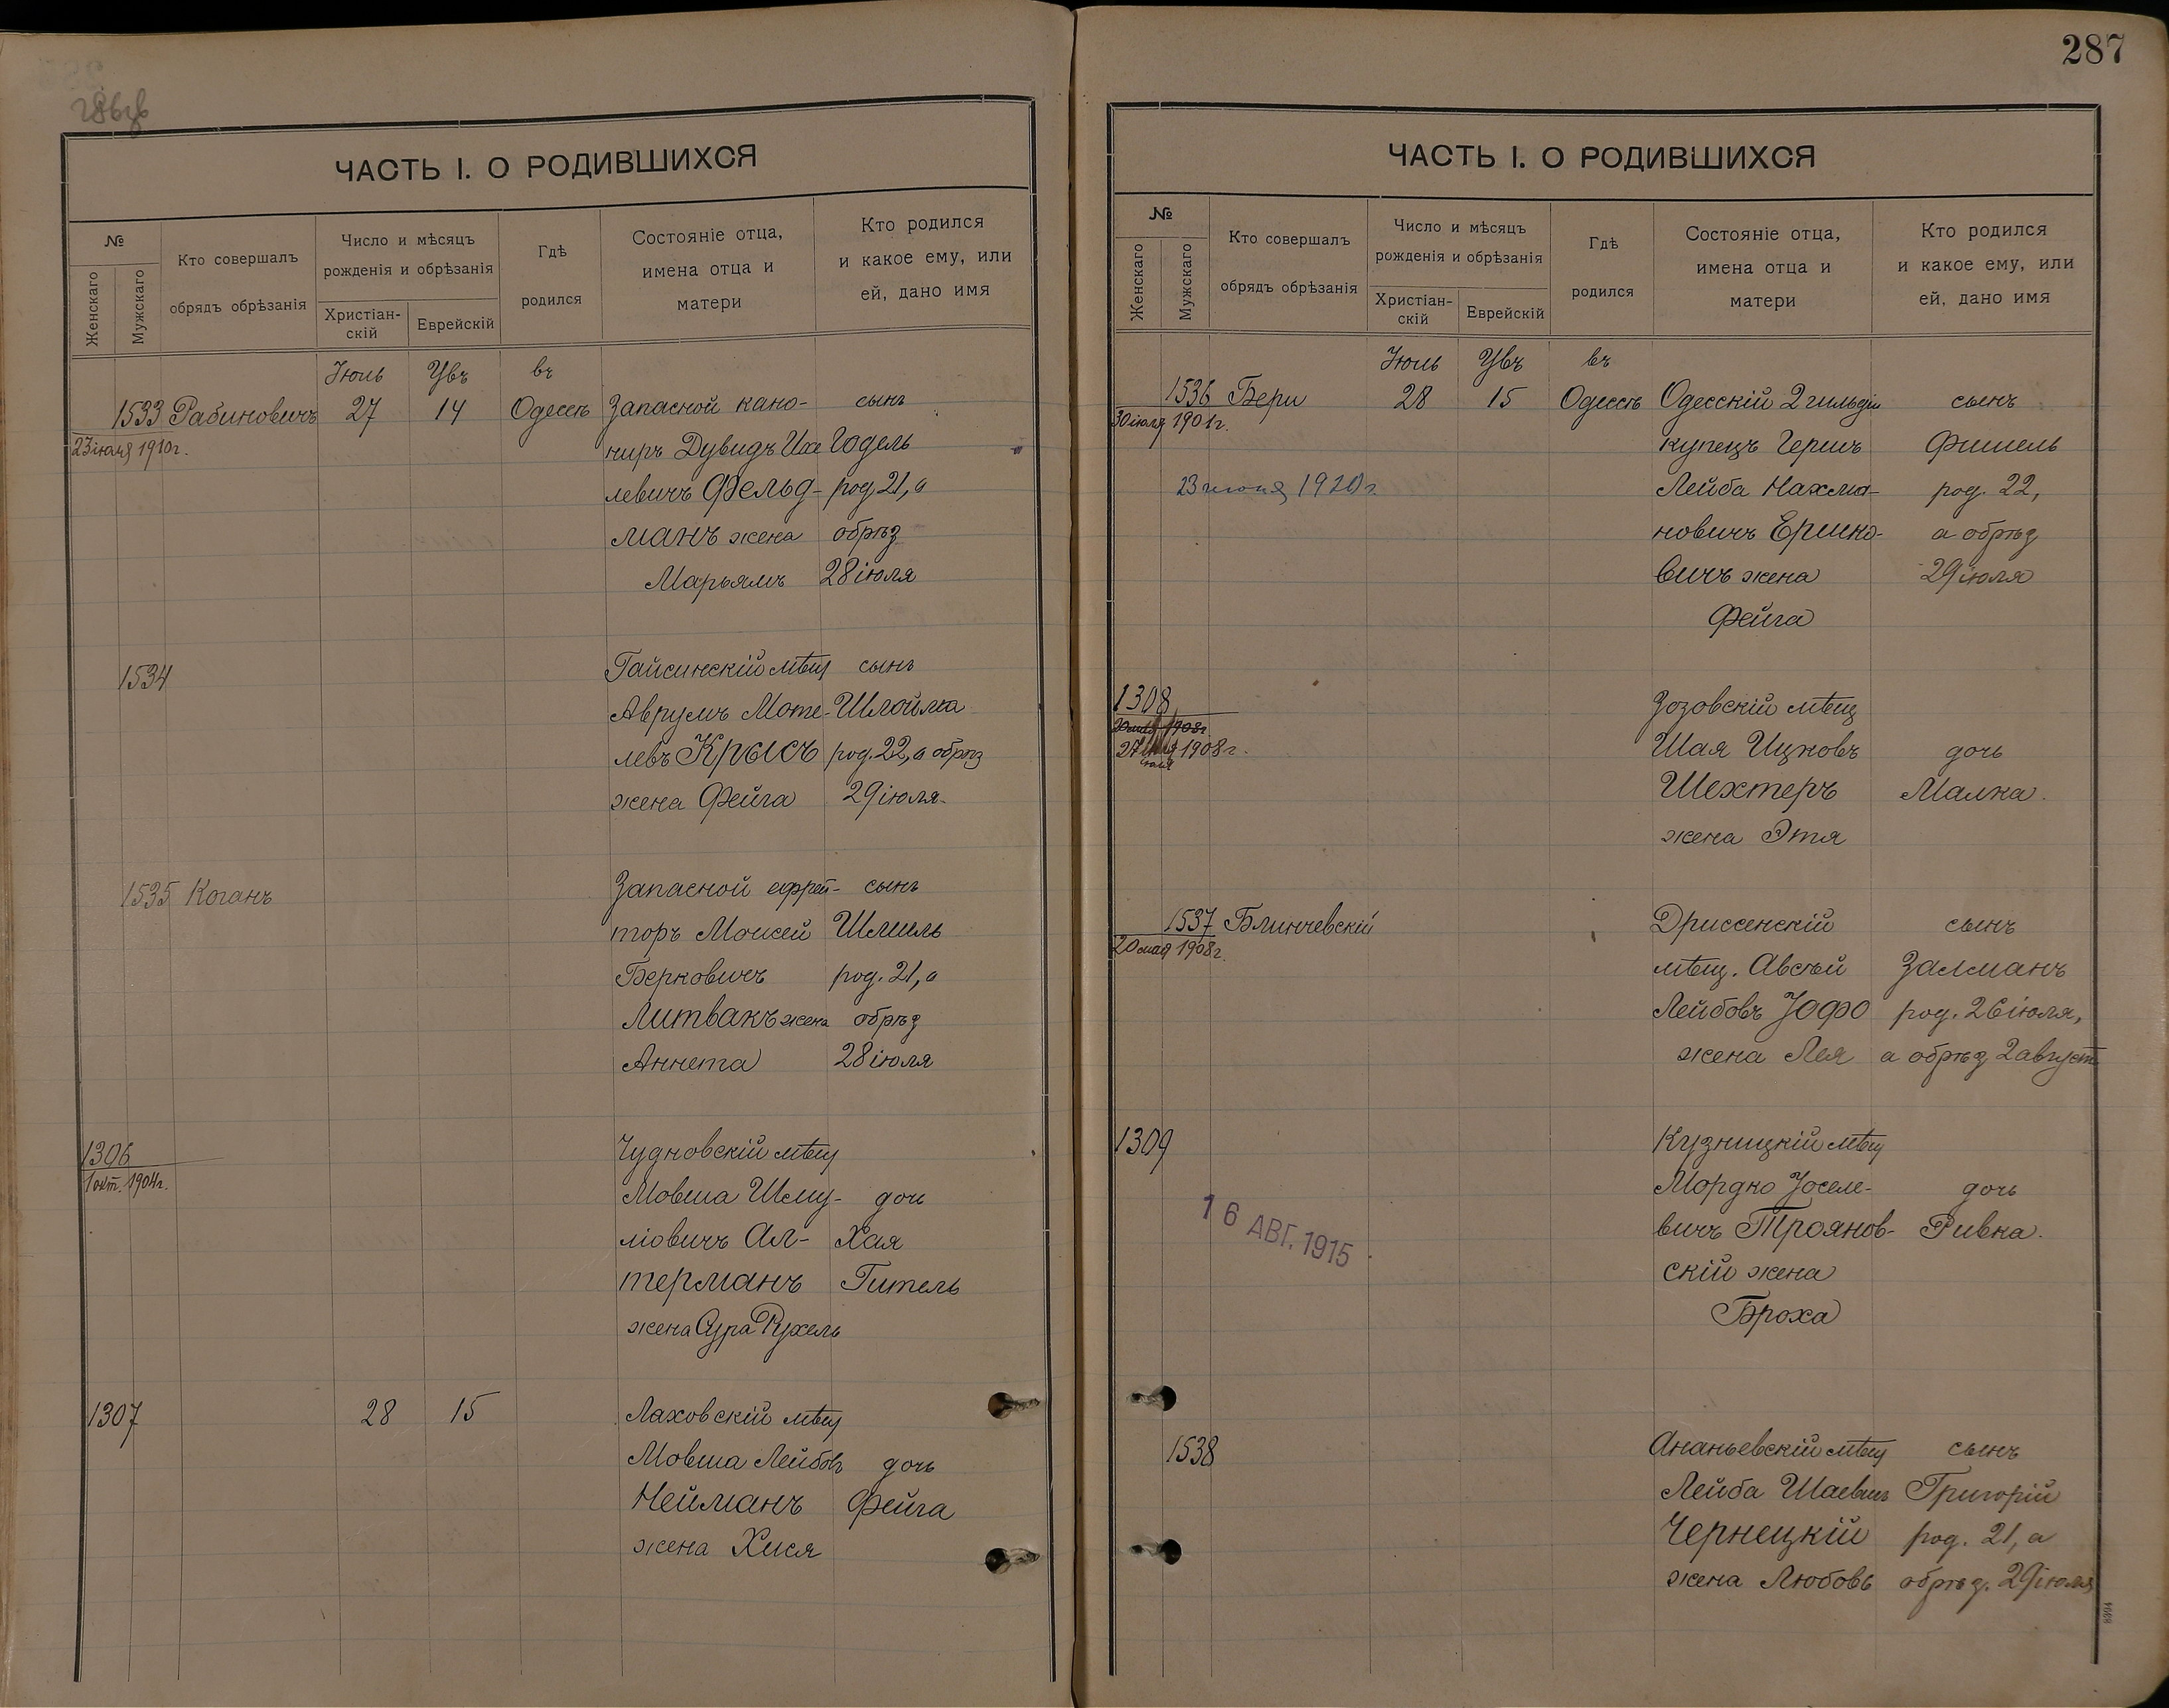 ЧАСТЬ I. О РОДИВШИХСЯ
№
Женскаго
Мужскаго
Кто совершалъ
обрядъ обрѣзанія
Число и мѣсяцъ
рожденія и обрѣзанія
Христіан-
скій
Еврейскій
Гдѣ
родился
Состояніе отца,
имена отца и
матери
Кто родился
и какое ему, или
ей, дано имя
Іюль Увъ въ
1533 Рабиновичъ 27 14 Одессѣ Запасной кано- сынъ
23 іюля 1910г.
ниръ Дувидъ Ихе Годель
левичъ Фельд- род 21, а
манъ жена обрѣз
Марьямъ 28 іюля
1534 Гайсинскій мѣщ сынъ
Аврумъ Моте- Шлойма
левъ Крысъ род. 22, а обрѣз
жена Фейга 29 іюля.
1535 Коганъ Запасной ефрей- сынъ
торъ Моисей Шмиль
Берковичъ род. 21, а
Литвакъ жена обрѣз
Аннета 28 іюля
1306 Чудновскій мѣщ
1 окт. 1904г.
Мовша Шму- дочь
ліовичъ Ал- Хая
терманъ Гитель
жена Сура Рухель
1307 28 15 Лаховскій мѣщ
Мовша Лейбовъ дочь
Нейманъ Фейга
жена Хися
287
ЧАСТЬ I. О РОДИВШИХСЯ
№
Женскаго
Мужскаго
Кто совершалъ
обрядъ обрѣзанія
Число и мѣсяцъ
рожденія и обрѣзанія
Христіан-
скій
Еврейскій
Гдѣ
родился
Состояніе отца,
имена отца и
матери
Кто родился
и какое ему, или
ей, дано имя
Іюль Увъ въ
1536 Бери 28 15 Одессѣ Одесскій 2 гильдіи сынъ
30 іюля 1901г.
купецъ Гершъ Фишель
23 июня 1920г. Лейба Нахма- род. 22,
новичъ Ершко- а обрѣз
вичъ жена 29 іюля
Фейга
1308 Зозовскій мѣщ
20 мая 1908г.
27 1908г.
іюля
Шая Ицковъ дочь
Шехтеръ Малка.
жена Этя
1537 Блинчевскій Дриссенскій сынъ
20 мая 1908г.
мѣщ. Авсѣй Залманъ
Лейбовъ Іофо род. 26 іюля,
жена Лея а обрѣз 2 август
1309 Кузницкій мѣщ
Мордко Іоселе- дочь
16 АВГ. 1915
вичъ Трояновъ- Ривка.
скій жена
Броха
1538 Ананьевскій мѣщ сынъ
Лейба Шаевичъ Григорій
Чернецкій род. 21, а
жена Любовь обрѣз. 29 іюля
8394